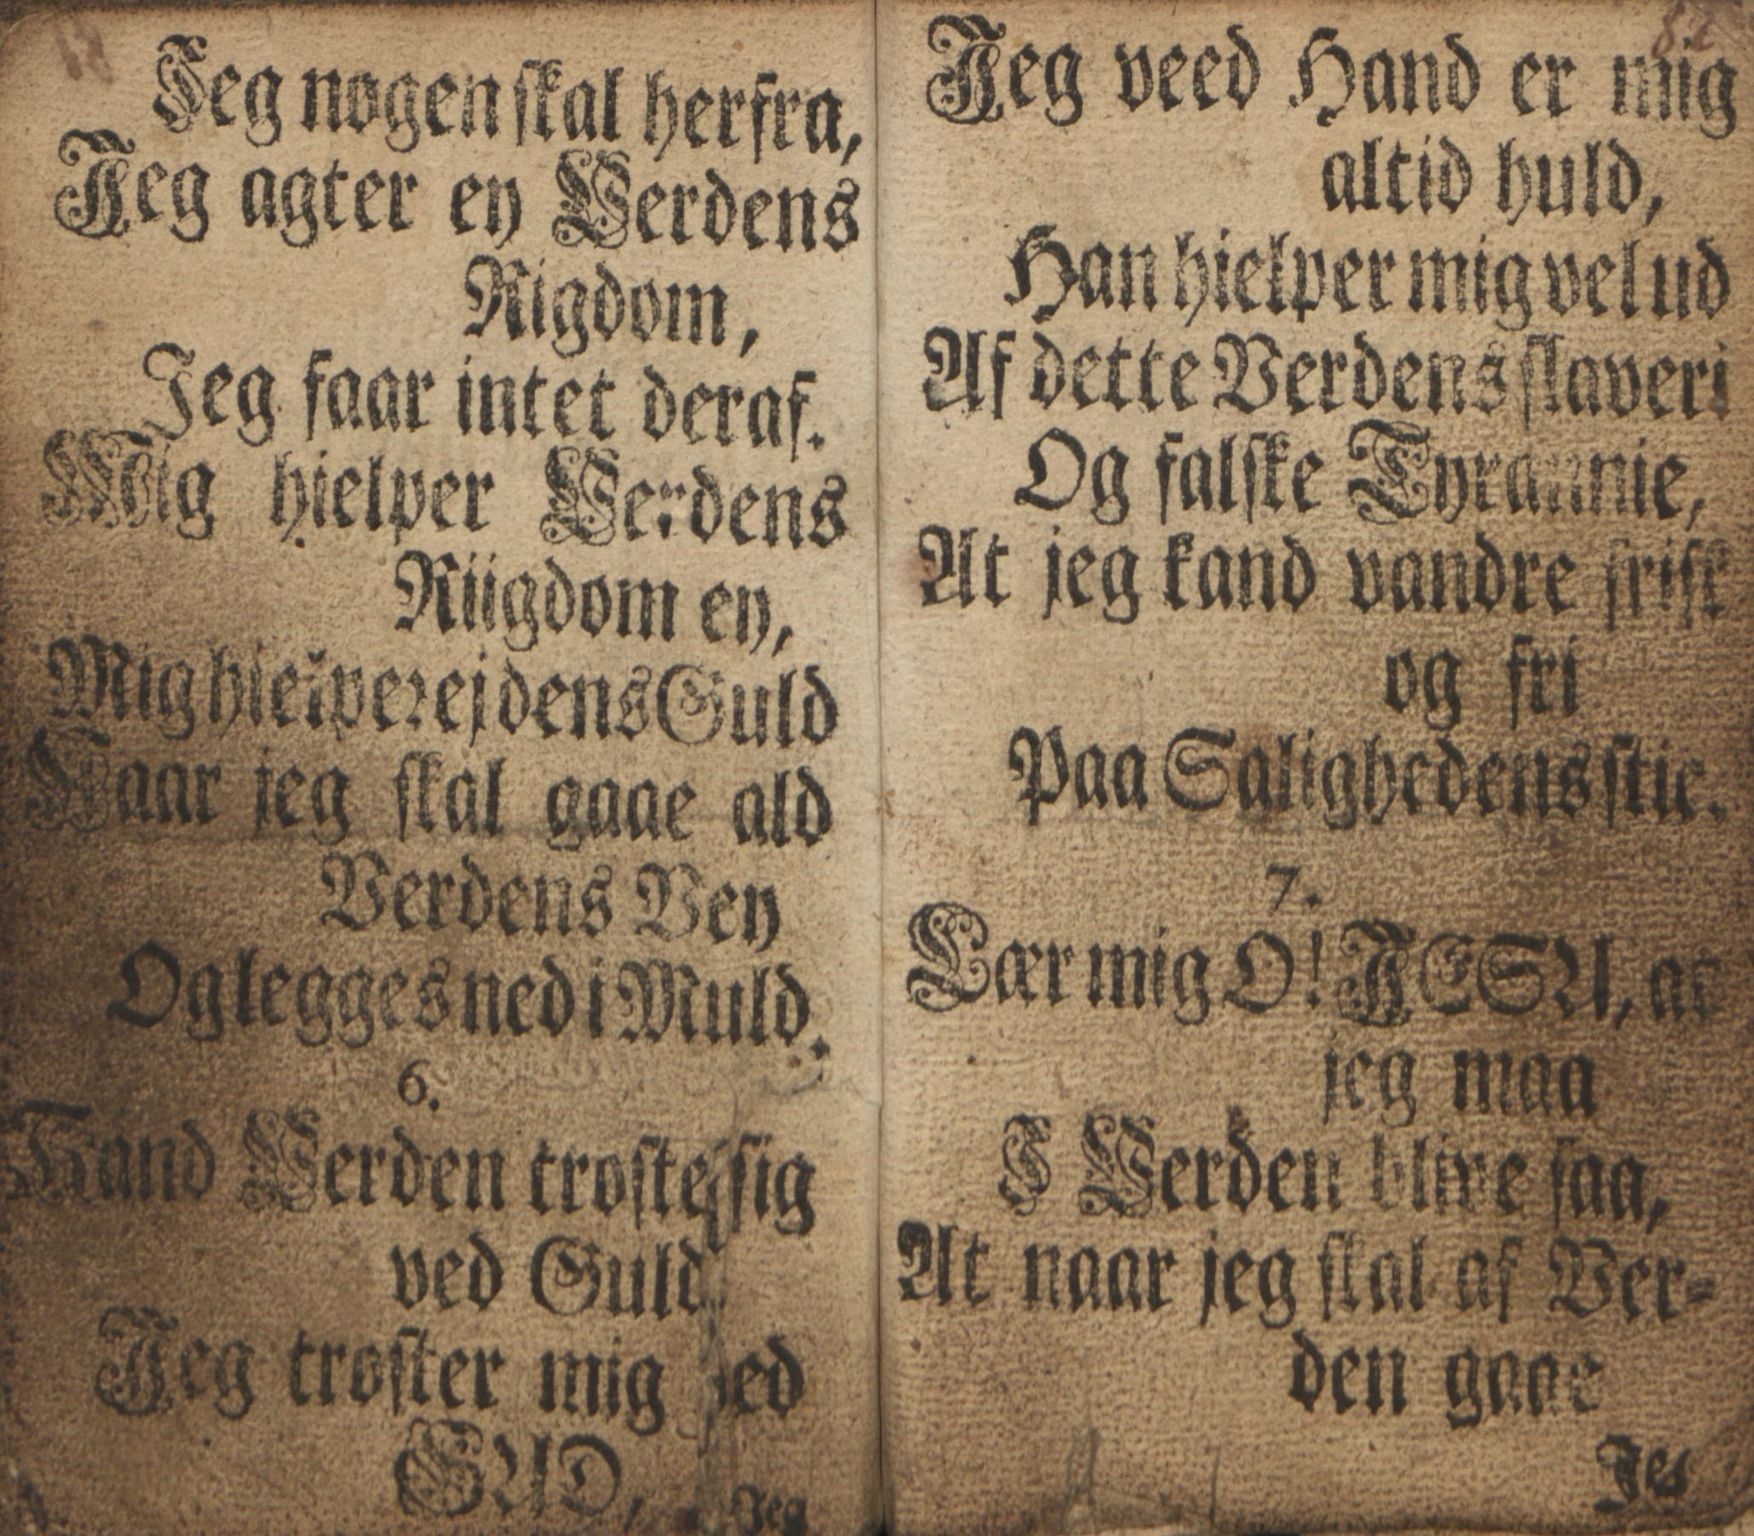 Jeg nogen skal herfra,
Jeg agter ey Verdens
Rigdom,
Jeg faar intet deraf.
Mig hielper Verdens
Riigdom ey,
Mig hielper ej dens Guld
Naar jeg skal gaae ald
Verdens Vey
Og legges ned i Muld.
6.
Hand Verden trøste sig
ved Guld
Jeg trøster mig ved
GUD,
Jeg
82
Jeg veed Hand er mig
altid huld,
Han hielper mig vel ud
Af dette Verdens slaveri
Og falske Tyrannie,
At jeg kand vandre frisk
og fri
Paa Salighedens stie.
7.
Lær mig O! JESU, at
jeg maa
I Verden blive saa,
At naar jeg skal af Ver-
den gaae
Jeg